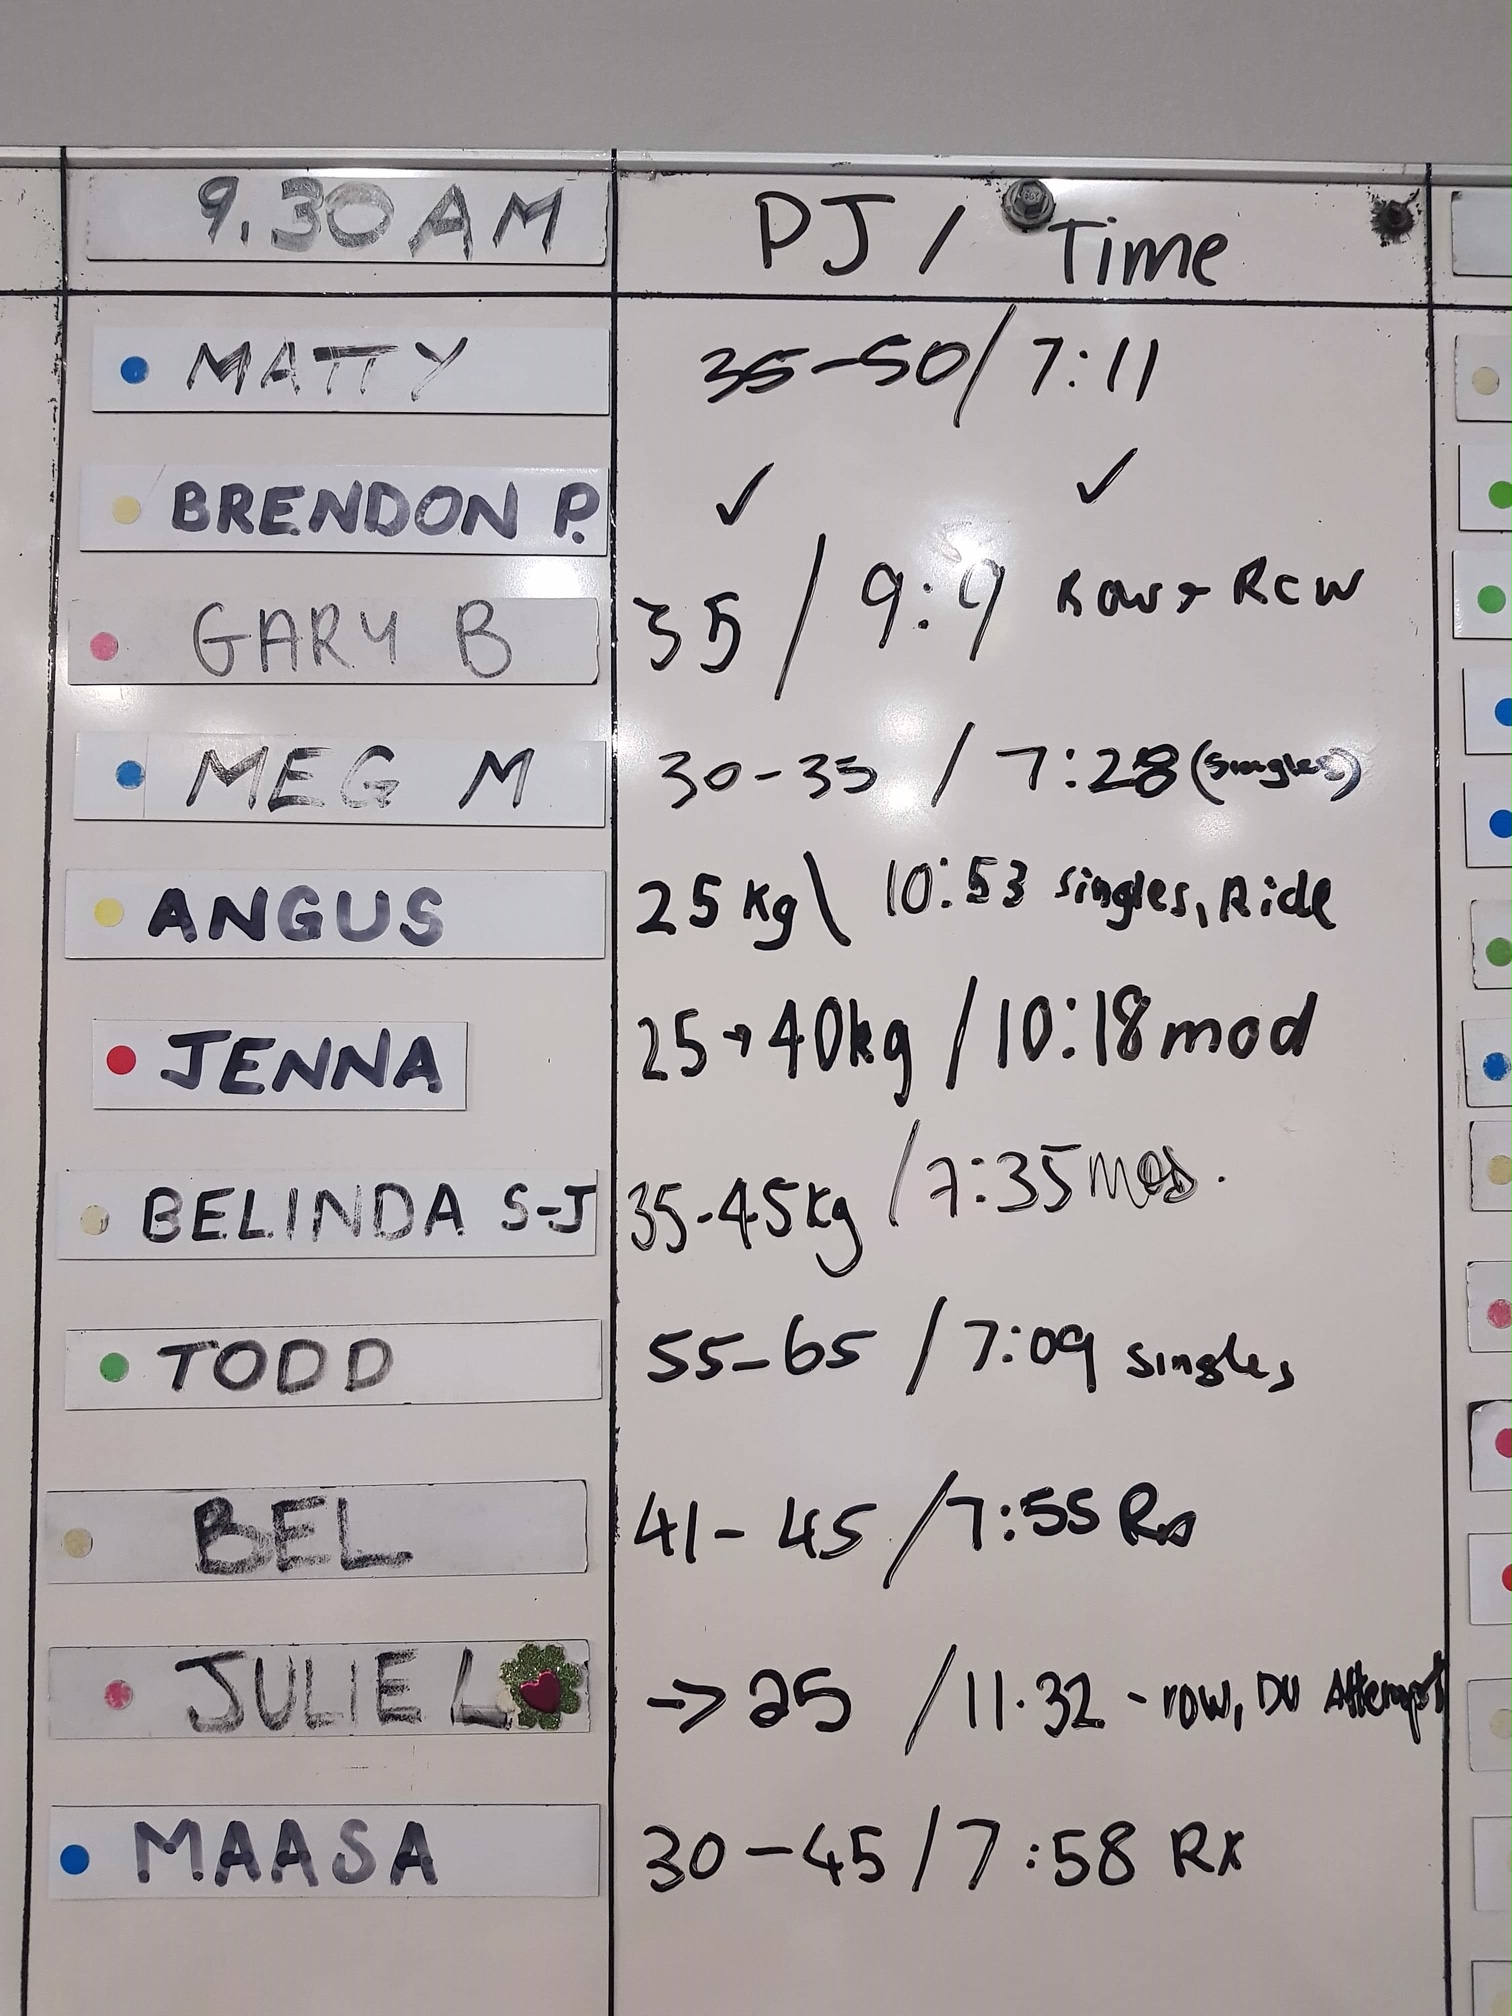 9.30AM PJ / Time
MATTY 35-50/ 7:11
BRENDON P. ✓ ✓
GARY B 35 / 9:9 Row + Row
MEG M 30-35 / 7:28 (singles)
ANGUS 25kg\ 10:53 singles, Ride
JENNA 25→40kg /10:18 mod
BELINDA S-J 35-45kg /7:35 mod.
TODD 55-65 / 7:09 singles
BEL 41-45 /7:55 Rx
JULIE L → 25 /11.32 - row, DU Attempt
MAASA 30-45 / 7:58 RX